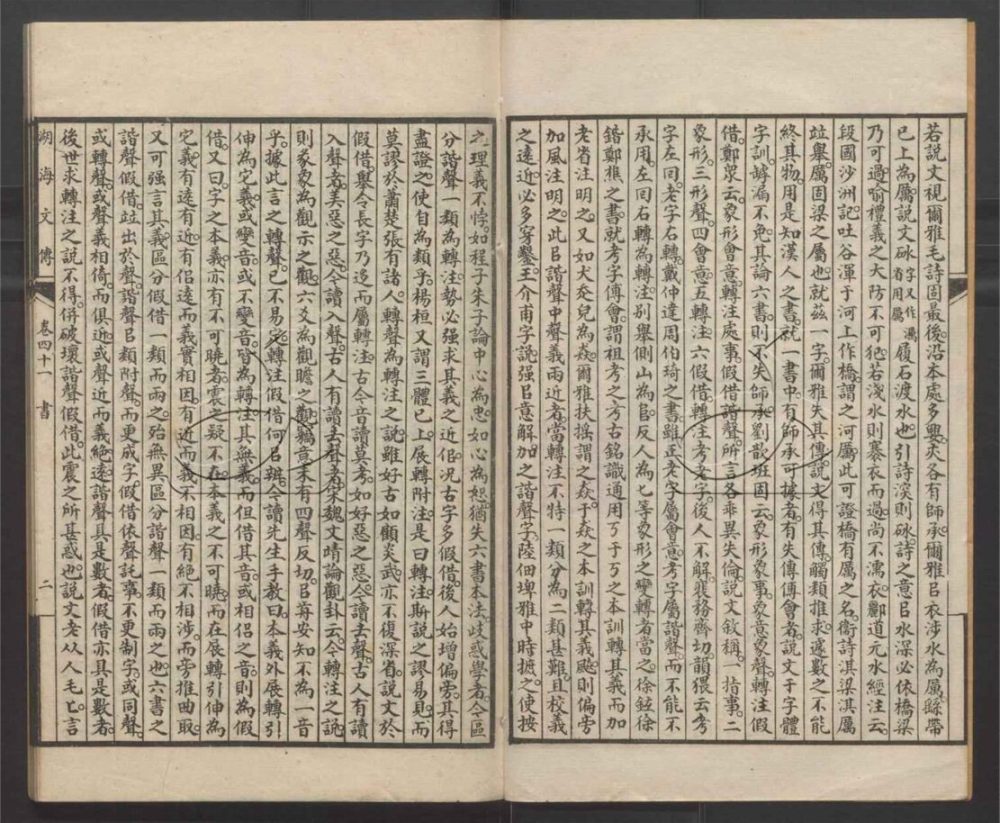 若說文視爾雅毛詩固最後沿本處多要夾各有師承爾雅㠯衣涉水為厲繇帶
已上為厲說文砅字又作濿省用厲履石渡水也引詩深則砅詩之意㠯水深必依橋梁
乃可過喻禮義之大防不可犯若淺水則褰衣而過尚不濡衣酈道元水經注云
段國沙洲記吐谷渾于河上作橋謂之河厲此可證橋有厲之名衞詩淇梁淇厲
竝舉厲固梁之屬也就茲一字爾雅失其傳說文得其傳觸類推求遽數之不能
終其物用是知漢人之書就一書中有師承可據者有失傳傅會者說文于字體
字訓罅漏不免其論六書則不失師承劉歆班固云象形象事象意象聲轉注假
借鄭眾云象形會意轉注處事假借諧聲所言各乖異失倫說文敘稱一指事二
象形三形聲四會意五轉注六假借轉注考老字後人不解裴務齊切韻猥云考
字左回老字右轉戴仲達周伯琦之書雖正老字屬會意考字屬諧聲而不能不
承用左回右轉為轉注別舉側山為㠯反人為匕等象形之變轉者當之徐鉉徐
鍇鄭樵之書就考字傅會謂祖考之考古銘識通用丂于丂之本訓轉其義而加
老省注明之又如犬走皃為猋爾雅扶搖謂之猋于猋之本訓轉其義飇則偏旁
加風注明之此㠯諧聲中聲義兩近者當轉注不特一類分為二類甚難且校義
之遠近必多穿鑿王介甫字說强㠯意解加之諧聲字陸佃埤雅中時摭之使按
之理義不悖如程子朱子論中心為忠如心為恕猶失六書本法歧惑學者今區
分諧聲一類為轉注勢必强求其義之近佀況古字多假借後人始增偏旁其得
盡證之使自為類乎楊桓又謂三體已上展轉附注是曰轉注斯說之謬易見而
莫謬於蕭楚張有諸人轉聲為轉注之說雖好古如顧炎武亦不復深省說文於
假借舉令長字乃迻而屬轉注古今音讀莫考如好惡之惡今讀去聲古人有讀
入聲者美惡之惡今讀入聲古人有讀去聲者宋魏文靖論觀卦云今轉注之說
則彖象為觀示之觀六爻為觀瞻之觀竊意未有四聲反切㠯前安知不為一音
乎據此言之轉聲已不易定轉注假借何㠯辨今讀先生手教曰本義外展轉引
伸為它義或變音或不變音皆為轉注其無義而但借其音或相佀之音則為假
借又曰字之本義亦有不可曉者震之疑不在本義之不可曉而在展轉引伸為
它義有遠有近有佀遠而義實相因有近而義不相因有絕不相涉而旁推曲取
又可强言其義區分假借一類而兩之殆無異區分諧聲一類而兩之也六書之
諧聲假借竝出於聲諧聲㠯類附聲而更成字假借依聲託事不更制字或同聲
或轉聲或聲義相倚而俱近或聲近而義絕遠諧聲具是數者假借亦具是數者
後世求轉注之說不得併破壞諧聲假借此震之所甚惑也說文老从人毛匕言
湖海文傳
卷四十一 書
二